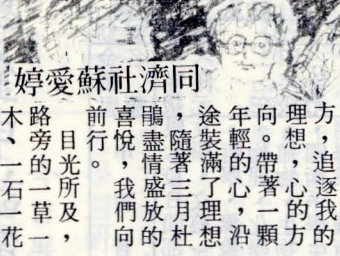 同濟社蘇愛婷
方，追逐我的
理想，心的方
向。帶著一顆
年輕的心，沿
途裝滿了理想
，隨著三月杜
鵑盡情盛放的
喜悅，我們向
前行。
目光所及，
路旁的一草一
木、一石一花